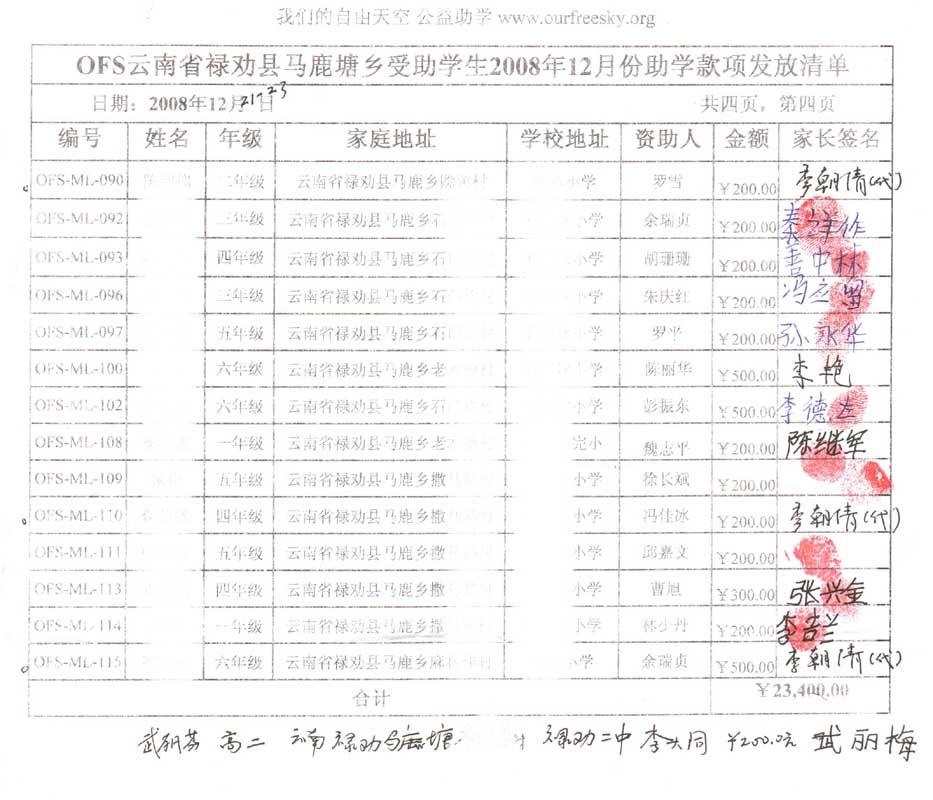 我们的自由天空 公益助学 www.ourfreesky.org
OFS云南省禄劝县马鹿塘乡受助学生2008年12月份助学款项发放清单
日期：2008年12月21-23日 共四页，第四页
编号 姓名 年级 家庭地址 学校地址 资助人 金额 家长签名
OFS-ML-090 二年级 云南省禄劝县马鹿乡 村 小学 罗雪 ￥200.00 李朝倩(代)
OFS-ML-092 三年级 云南省禄劝县马鹿乡石 小学 余瑞贞 ￥200.00 秦 作
OFS-ML-093 四年级 云南省禄劝县马鹿乡石 小学 胡珊珊 ￥200.00 中林
OFS-ML-096 三年级 云南省禄劝县马鹿乡石 小学 朱庆红 ￥200.00 冯
OFS-ML-097 五年级 云南省禄劝县马鹿乡石 小学 罗平 ￥200.00 孙永华
OFS-ML-100 六年级 云南省禄劝县马鹿乡老 小学 陈丽华 ￥500.00 李艳
OFS-ML-102 六年级 云南省禄劝县马鹿乡石 小学 彭振东 ￥500.00 李德
OFS-ML-108 一年级 云南省禄劝县马鹿乡老 完小 魏志平 ￥200.00 陈继军
OFS-ML-109 五年级 云南省禄劝县马鹿乡撒 小学 徐长斌 ￥200.00
OFS-ML-110 四年级 云南省禄劝县马鹿乡撒 小学 冯佳冰 ￥200.00 李朝倩(代)
OFS-ML-111 五年级 云南省禄劝县马鹿乡撒 小学 邱嘉文 ￥200.00
OFS-ML-113 四年级 云南省禄劝县马鹿乡撒 小学 曹旭 ￥300.00 张兴
OFS-ML-114 一年级 云南省禄劝县马鹿乡撒 小学 林少丹 ￥200.00 李 兰
OFS-ML-115 六年级 云南省禄劝县马鹿乡麻 村 小学 余瑞贞 ￥500.00 李朝倩(代)
合计 ￥23,400.00
高二 云南禄劝马鹿塘 禄劝二中 李 同 ￥200.00元 武丽梅